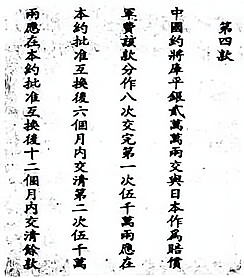 第四款
中國約將庫平銀貳萬萬兩交與日本作為賠償
軍費該款分作八次交完第一次伍千萬兩應在
本約批准互換後六個月內交清第二次伍千萬
兩應在本約批准互換後十二個月內交清餘款